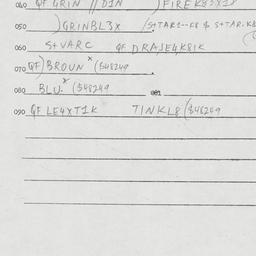 040 QF GRIN // D1N )FIREK85X18
050 )GRINBL3X (S+TAR1--F8 & S+TAR.KB
060 S+VARC QF DRAJE4K81K
070 QF)BROUN X (S48249
080 BLU. X (S48249 081
090 QF LE4XT1K TINKL8 (S48249